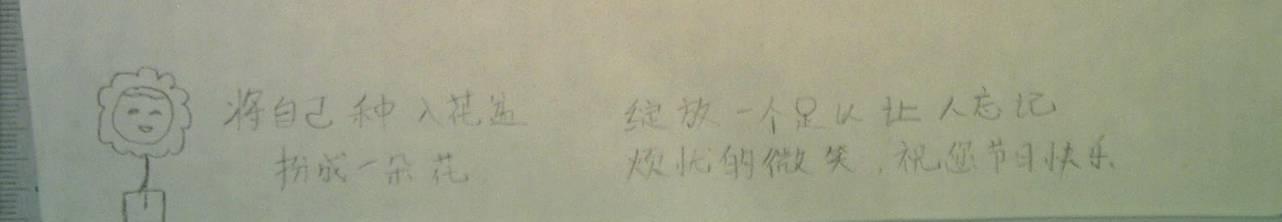 将自己种入花盆
扮成一朵花
绽放一个足以让人忘记
烦忧的微笑，祝您节日快乐